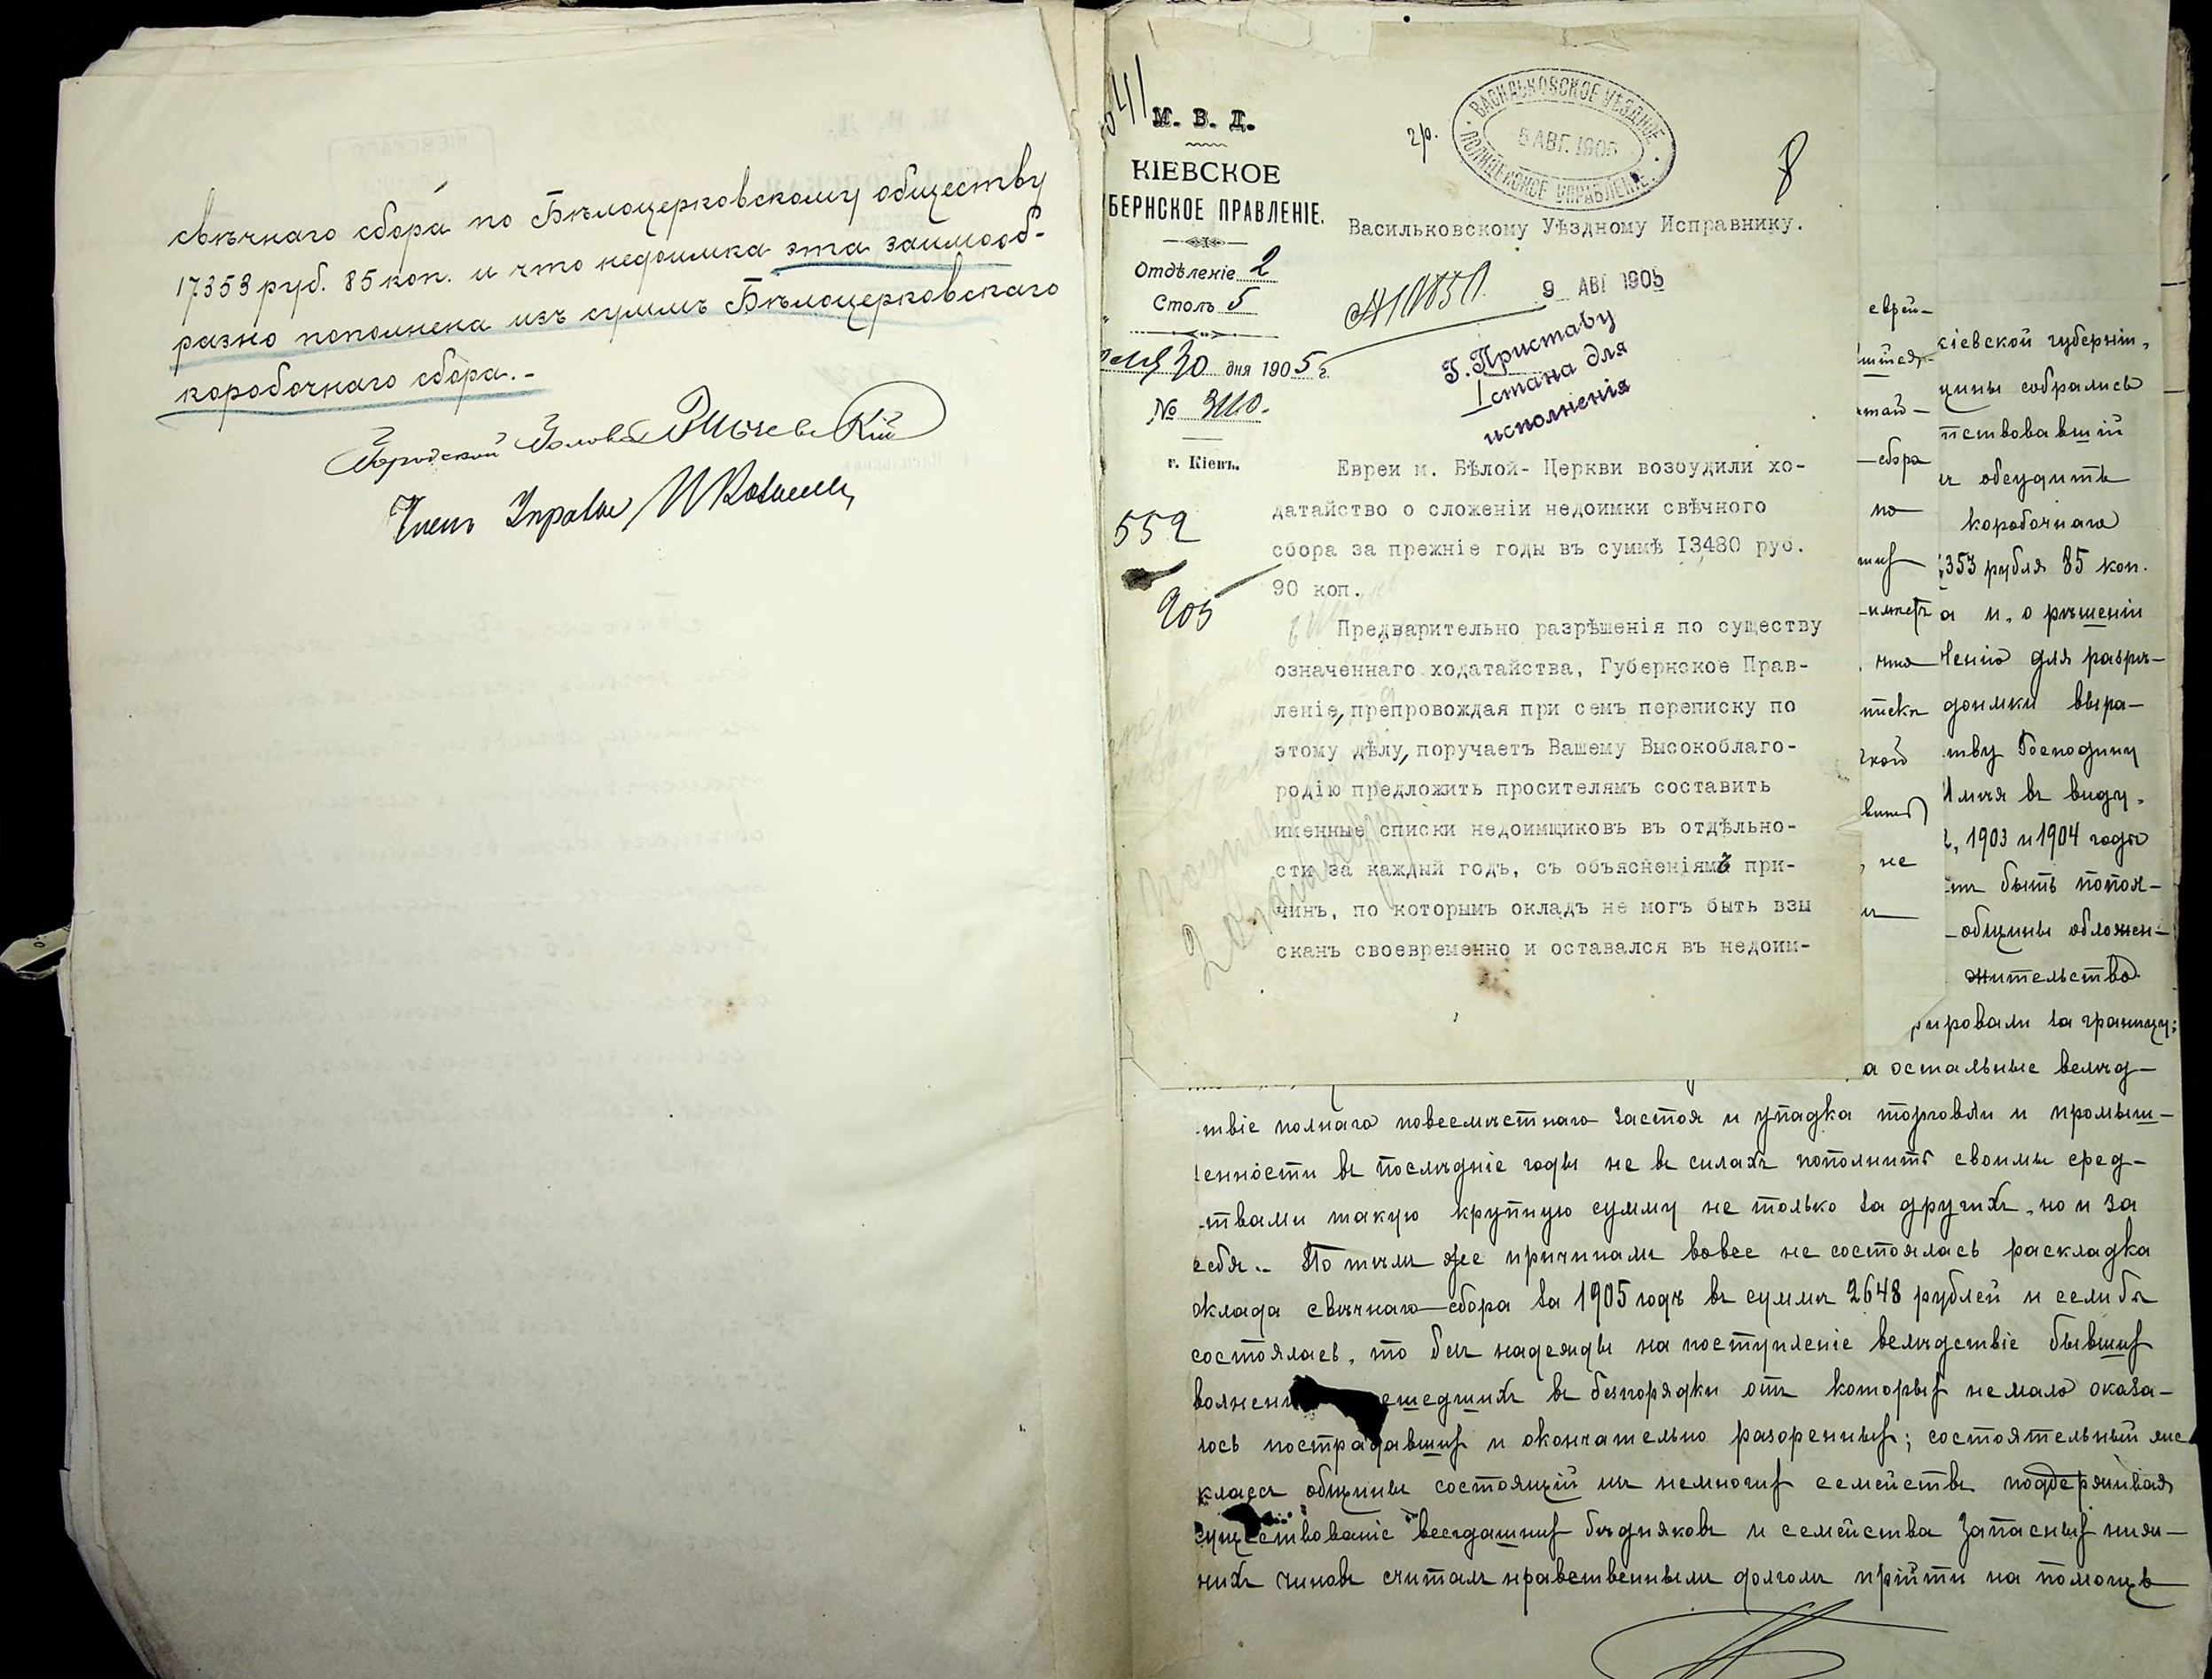 свѣчнаго сбора по Бѣлоцерковскому обществу
17353 руб. 85 коп. и что недоимка эта заимооб-
разно пополнена изъ суммъ Бѣлоцерковскаго
коробочнаго сбора.-
Городской Голова
Членъ Управы
М. В. Д.
КІЕВСКОЕ
БЕРНСКОЕ ПРАВЛЕНІЕ.
Отдѣленіе 2
Столъ 5
30 дня 1905 г.
№
г. Кіевъ.
552
905
гр.
ВАСИЛЬКОВСКОЕ УѢЗДНОЕ
ПОЛИЦЕЙСКОЕ УПРАВЛЕНІЕ
5 АВГ. 1905
8
Васильковскому Уѣздному Исправнику.
9 АВГ 1905
Г. Приставу
1 стана для
исполненія
Евреи м. Бѣлой- Церкви возбудили хо-
датайство о сложеніи недоимки свѣчного
сбора за прежніе годы въ суммѣ I3480 руб.
90 коп.
Предварительно разрѣшенія по существу
означеннаго ходатайства, Губернское Прав-
леніе, препровождая при семъ переписку по
этому дѣлу, поручаетъ Вашему Высокоблаго-
родію предложить просителямъ составить
именные списки недоимщиковъ въ отдѣльно-
сти за каждый годъ, съ объясненіямъ при-
чинъ, по которымъ окладъ не могъ быть взы
сканъ своевременно и оставался въ недоим-
еврей-
сбора
по
что
не
кіевской губерніи,
собрались
обсудить
коробочнаго
353 рубля 85 коп.
а и, о рѣшеніи
для разрѣ-
выра-
Господину
въ виду,
1903 и 1904 годы
быть попол-
общины обложен-
жительство
ировали за границу;
а остальные вслѣд-
твіе полнаго повсемѣстнаго застоя и упадка торговли и промыш-
ленности въ послѣдніе годы не въ силахъ пополнить своимъ сред-
твами такую крупную сумму не только за другихъ, но и за
себя.. По тѣмъ же причинамъ вовсе не состоялась раскладка
оклада свѣчнаго сбора за 1905 годъ въ суммѣ 2648 рублей и если бъ
состоялась, то безъ надежды на поступленіе вслѣдствіе бывшихъ
волнені ешедшихъ въ безпорядки отъ которыхъ немало оказа-
лось пострадавшихъ и окончательно разоренныхъ; состоятельный же
классъ общины состоящій изъ немногихъ семействъ поддерживая
существованіе всегдашнихъ бѣдняковъ и семейства запасныхъ ниж-
нихъ чиновъ считалъ нравственнымъ долгомъ прійти на помощь